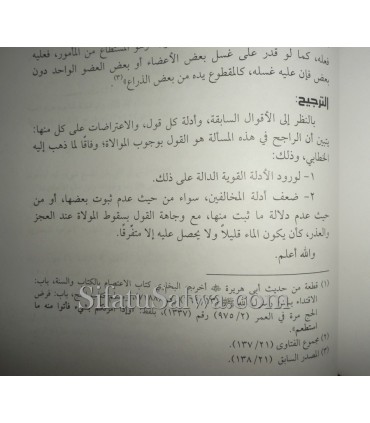 فعله، كما لو قدر على غسل بعض الأعضاء أو بعض العضو الواحد دون
بعض فإن عليه غسله، كالمقطوع يده من بعض الذراع»(٣).
الترجيح:
بالنظر إلى الأقوال السابقة، وأدلة كل قول، والاعتراضات على كل منها:
يتبين أن الراجح في هذه المسألة هو القول بوجوب الموالاة؛ وفاقًا لما ذهب إليه
الخطابي، وذلك:
١- لورود الأدلة القوية الدالة على ذلك.
٢- ضعف أدلة المخالفين، سواء من حيث عدم ثبوت بعضها، أو من
حيث عدم دلالة ما ثبت منها، مع وجاهة القول بسقوط الموالاة عند العجز
والعذر، كأن يكون الماء قليلاً ولا يحصل عليه إلا متفرقًا.
والله أعلم.
(١) قطعة من حديث أبي هريرة أخرجه البخاري كتاب الاعتصام بالكتاب والسنة، باب:
الاقتداء باب: فرض
الحج مرة في العمر (٢/ ٩٧٥) رقم (١٣٣٧)، بلفظ: فأتوا منه ما
استطعتم».
(٢) مجموع الفتاوى (٢١/ ١٣٧).
(٣) المصدر السابق (٢١/ ١٣٨).
SifatuSafwa.com